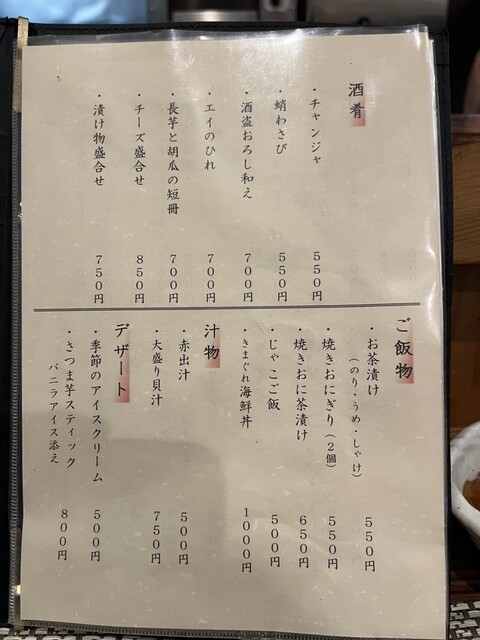 酒肴
・チャンジャ 550円
・蛸わさび 550円
・酒盗おろし和え 700円
・エイのひれ 700円
・長芋と胡瓜の短冊 700円
・チーズ盛合せ 850円
・漬け物盛合せ 750円
ご飯物
・お茶漬け 550円
（のり・うめ・しゃけ）
・焼きおにぎり（2個） 550円
・焼きおに茶漬け 650円
・じゃこご飯 500円
・きまぐれ海鮮丼 1000円
汁物
・赤出汁 500円
・大盛り貝汁 750円
デザート
・季節のアイスクリーム 500円
・さつま芋スティック 800円
バニラアイス添え